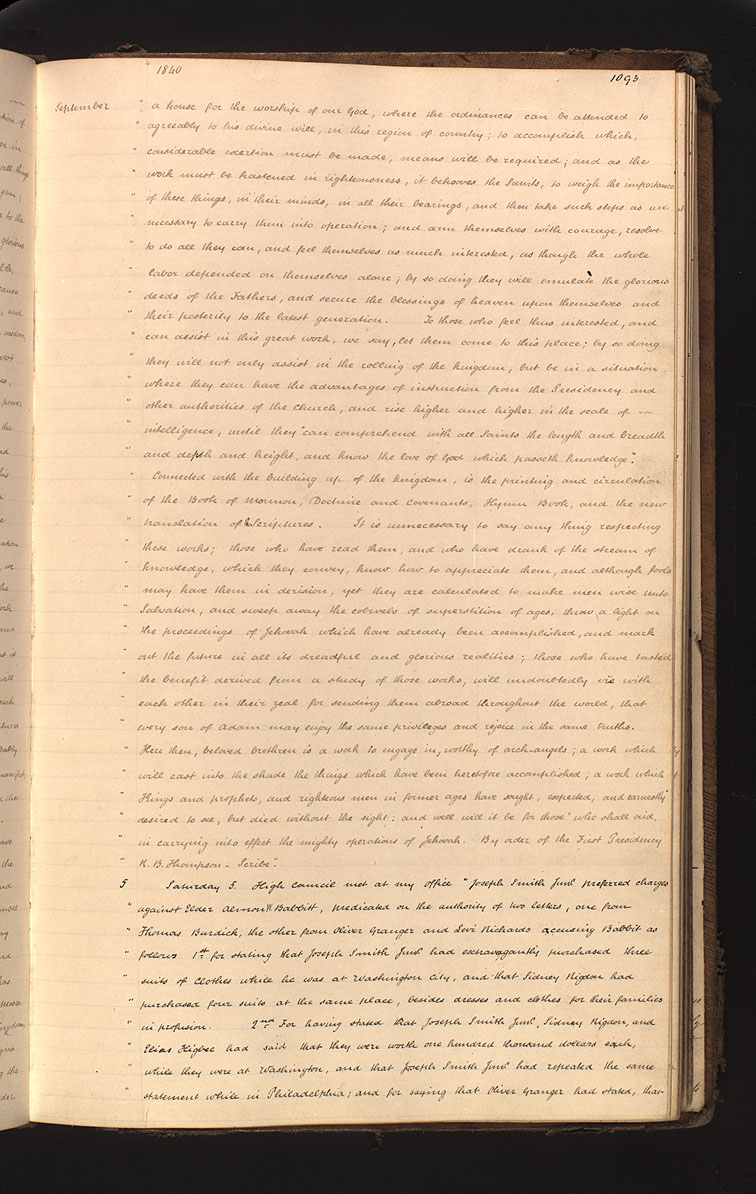 1840
1093
September " a house for the worship of our God, where the ordinances can be attended to
" agreeably to his divine will, in this region of country; to accomplish which,
" considerable exertion must be made, means will be required; and as the
" work must be hastened in righteousness, it behooves the Saints, to weigh the importance
" of these things, in their minds, in all their bearings, and then take such steps as are
" necessary to carry them into operation; and arm themselves with courage, resolve
" to do all they can, and feel themselves as much interested, as though the whole
" labor depended on themselves alone; by so doing they will emulate the glorious
" deeds of the Fathers, and secure the blessings of heaven upon themselves and
" their posterity to the latest generation. To those who feel thus interested, and
" can assist in this great work, we say, let them come to this place; by so doing
" they will not only assist in the rolling of the kingdom, but be in a situation
" where they can have the advantages of instruction from the Presidency and
" other authorities of the Church, and rise higher and higher in the scale of —
" intelligence, until they "can comprehend with all Saints the length and breadth
" and depth and height, and know the love of God which passeth knowledge".
" Connected with the building up of the kingdom, is the printing and circulation
" of the Book of Mormon, Doctrine and Covenants, Hymn Book, and the new
" translation of Scriptures. It is unnecessary to say any thing respecting
" these works; those who have read them, and who have drank of the stream of
" knowledge, which they convey, know how to appreciate them, and although fools
" may have them in derision, yet they are calculated to make men wise unto
" Salvation, and sweep away the cobwebs of superstition of ages, throw a light on
" the proceedings of Jehovah which have already been accomplished, and mark
" out the future in all its dreadful and glorious realities; those who have tasted
" the benefit derived from a study of those works, will undoubtedly vie with
" each other in their zeal for sending them abroad throughout the world, that
" every son of Adam may enjoy the same privileges and rejoice in the same truths.
" Here then, beloved brethren is a work to engage in, worthy of arch-angels; a work which
" will cast into the shade the things which have been heretofore accomplished; a work which
" Kings and prophets, and righteous men in former ages have sought, expected, and earnestly
" desired to see, but died without the sight: and well will it be for those who shall aid,
" in carrying into effect the mighty operations of Jehovah. By order of the First Presidency
" R. B. Thompson – Scribe".
5 Saturday 5. High Council met at my office "Joseph Smith Junr. preferred charges
" against Elder Almon W Babbitt, predicated on the authority of two letters, one from
" Thomas Burdick, the other from Oliver Granger and Levi Richards accusing Babbit as
" follows 1st for stating that Joseph Smith Junr. had extravagantly purchased three
" suits of clothes while he was at Washington City, and that Sidney Rigdon had
" purchased four suits at the same place, besides dresses and clothes for their families
" in profusion. 2nd For having stated that Joseph Smith Junr, Sidney Rigdon, and
" Elias Higbee had said that they were worth one hundred thousand dollars each,
" while they were at Washington, and that Joseph Smith Junr had repeated the same
" statement while in Philadelphia; and for saying that Oliver Granger had stated, that